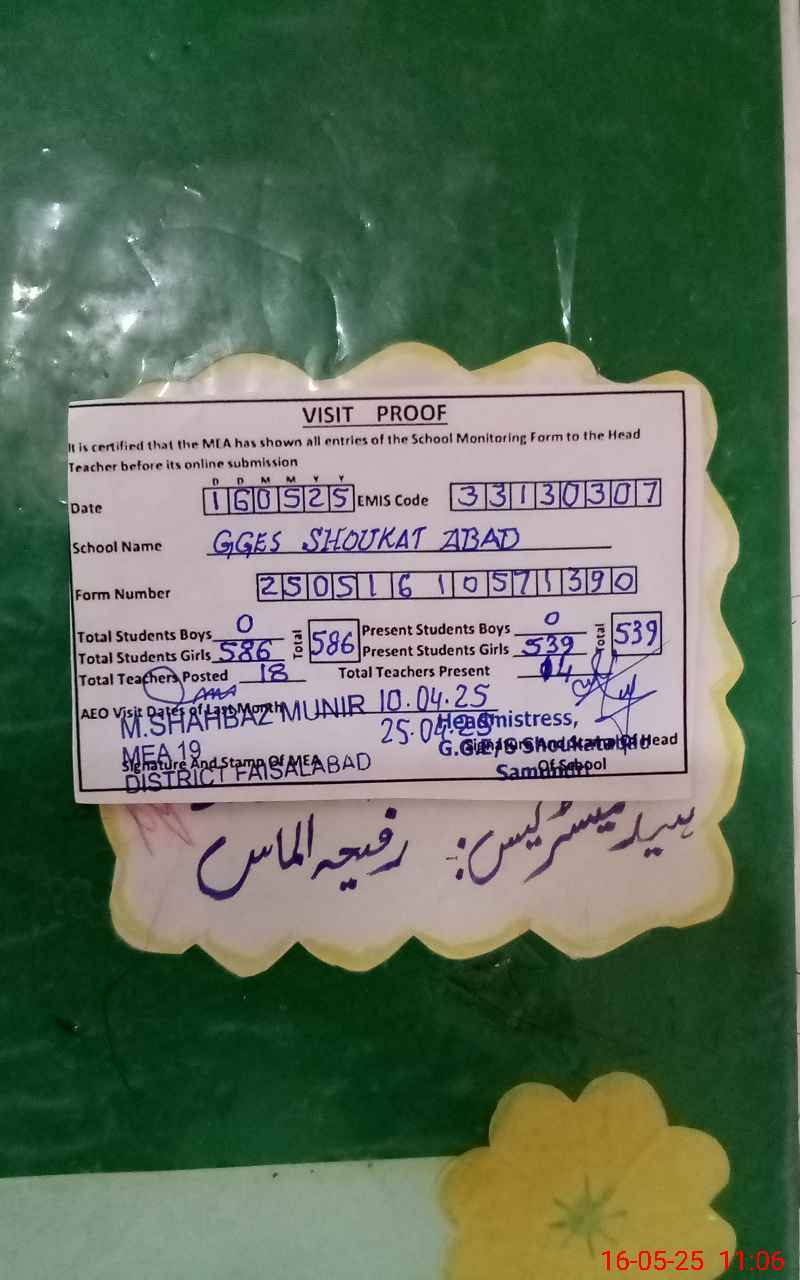 VISIT PROOF
It is certified that the MEA has shown all entries of the School Monitoring Form to the Head
Teacher before its online submission
D D M M Y Y
Date 160525 EMIS Code 33130307
School Name GGES SHOUKAT ABAD
Form Number 25051610571390
Total Students Boys 0 Total 586 Present Students Boys 0 Total 539
Total Students Girls 586 Present Students Girls 539
Total Teachers Posted 18 Total Teachers Present 14
AEO Visit Dates of Last Month 10.04.25
25.04.25
M.SHAHBAZ MUNIR
MEA 19
DISTRICT FAISALABAD
Signature And Stamp Of MEA
Headmistress,
G.G.E/S Shoukatabad
Samundri
Signature And Stamp Of Head
Of School
ہیڈ میسٹریس: رفیعہ الماس
16-05-25 11:06